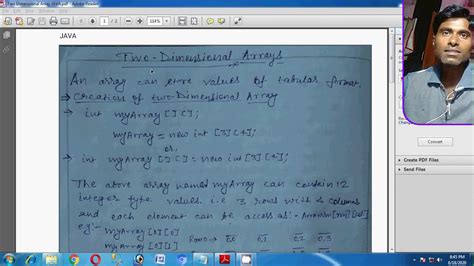 Two Dimensional Array JAVA.pdf - Adobe Reader
JAVA
Two-Dimensional Arrays
An array can store values of tabular format.
→ Creation of two-Dimensional Array
→ int myArray [ ] [ ];
myArray = new int [3][4];
or,
→ int myArray [ ] [ ] = new int [3][4];
The above array named myArray can contain 12
integer type values i.e 3 rows with 4 columns
and each element can be access as:-
eg:- myArray [0][0]
myArray [0][1] Row0→ 0,0 0,1 0,2 0,3
Convert
8:45 PM
6/18/2020